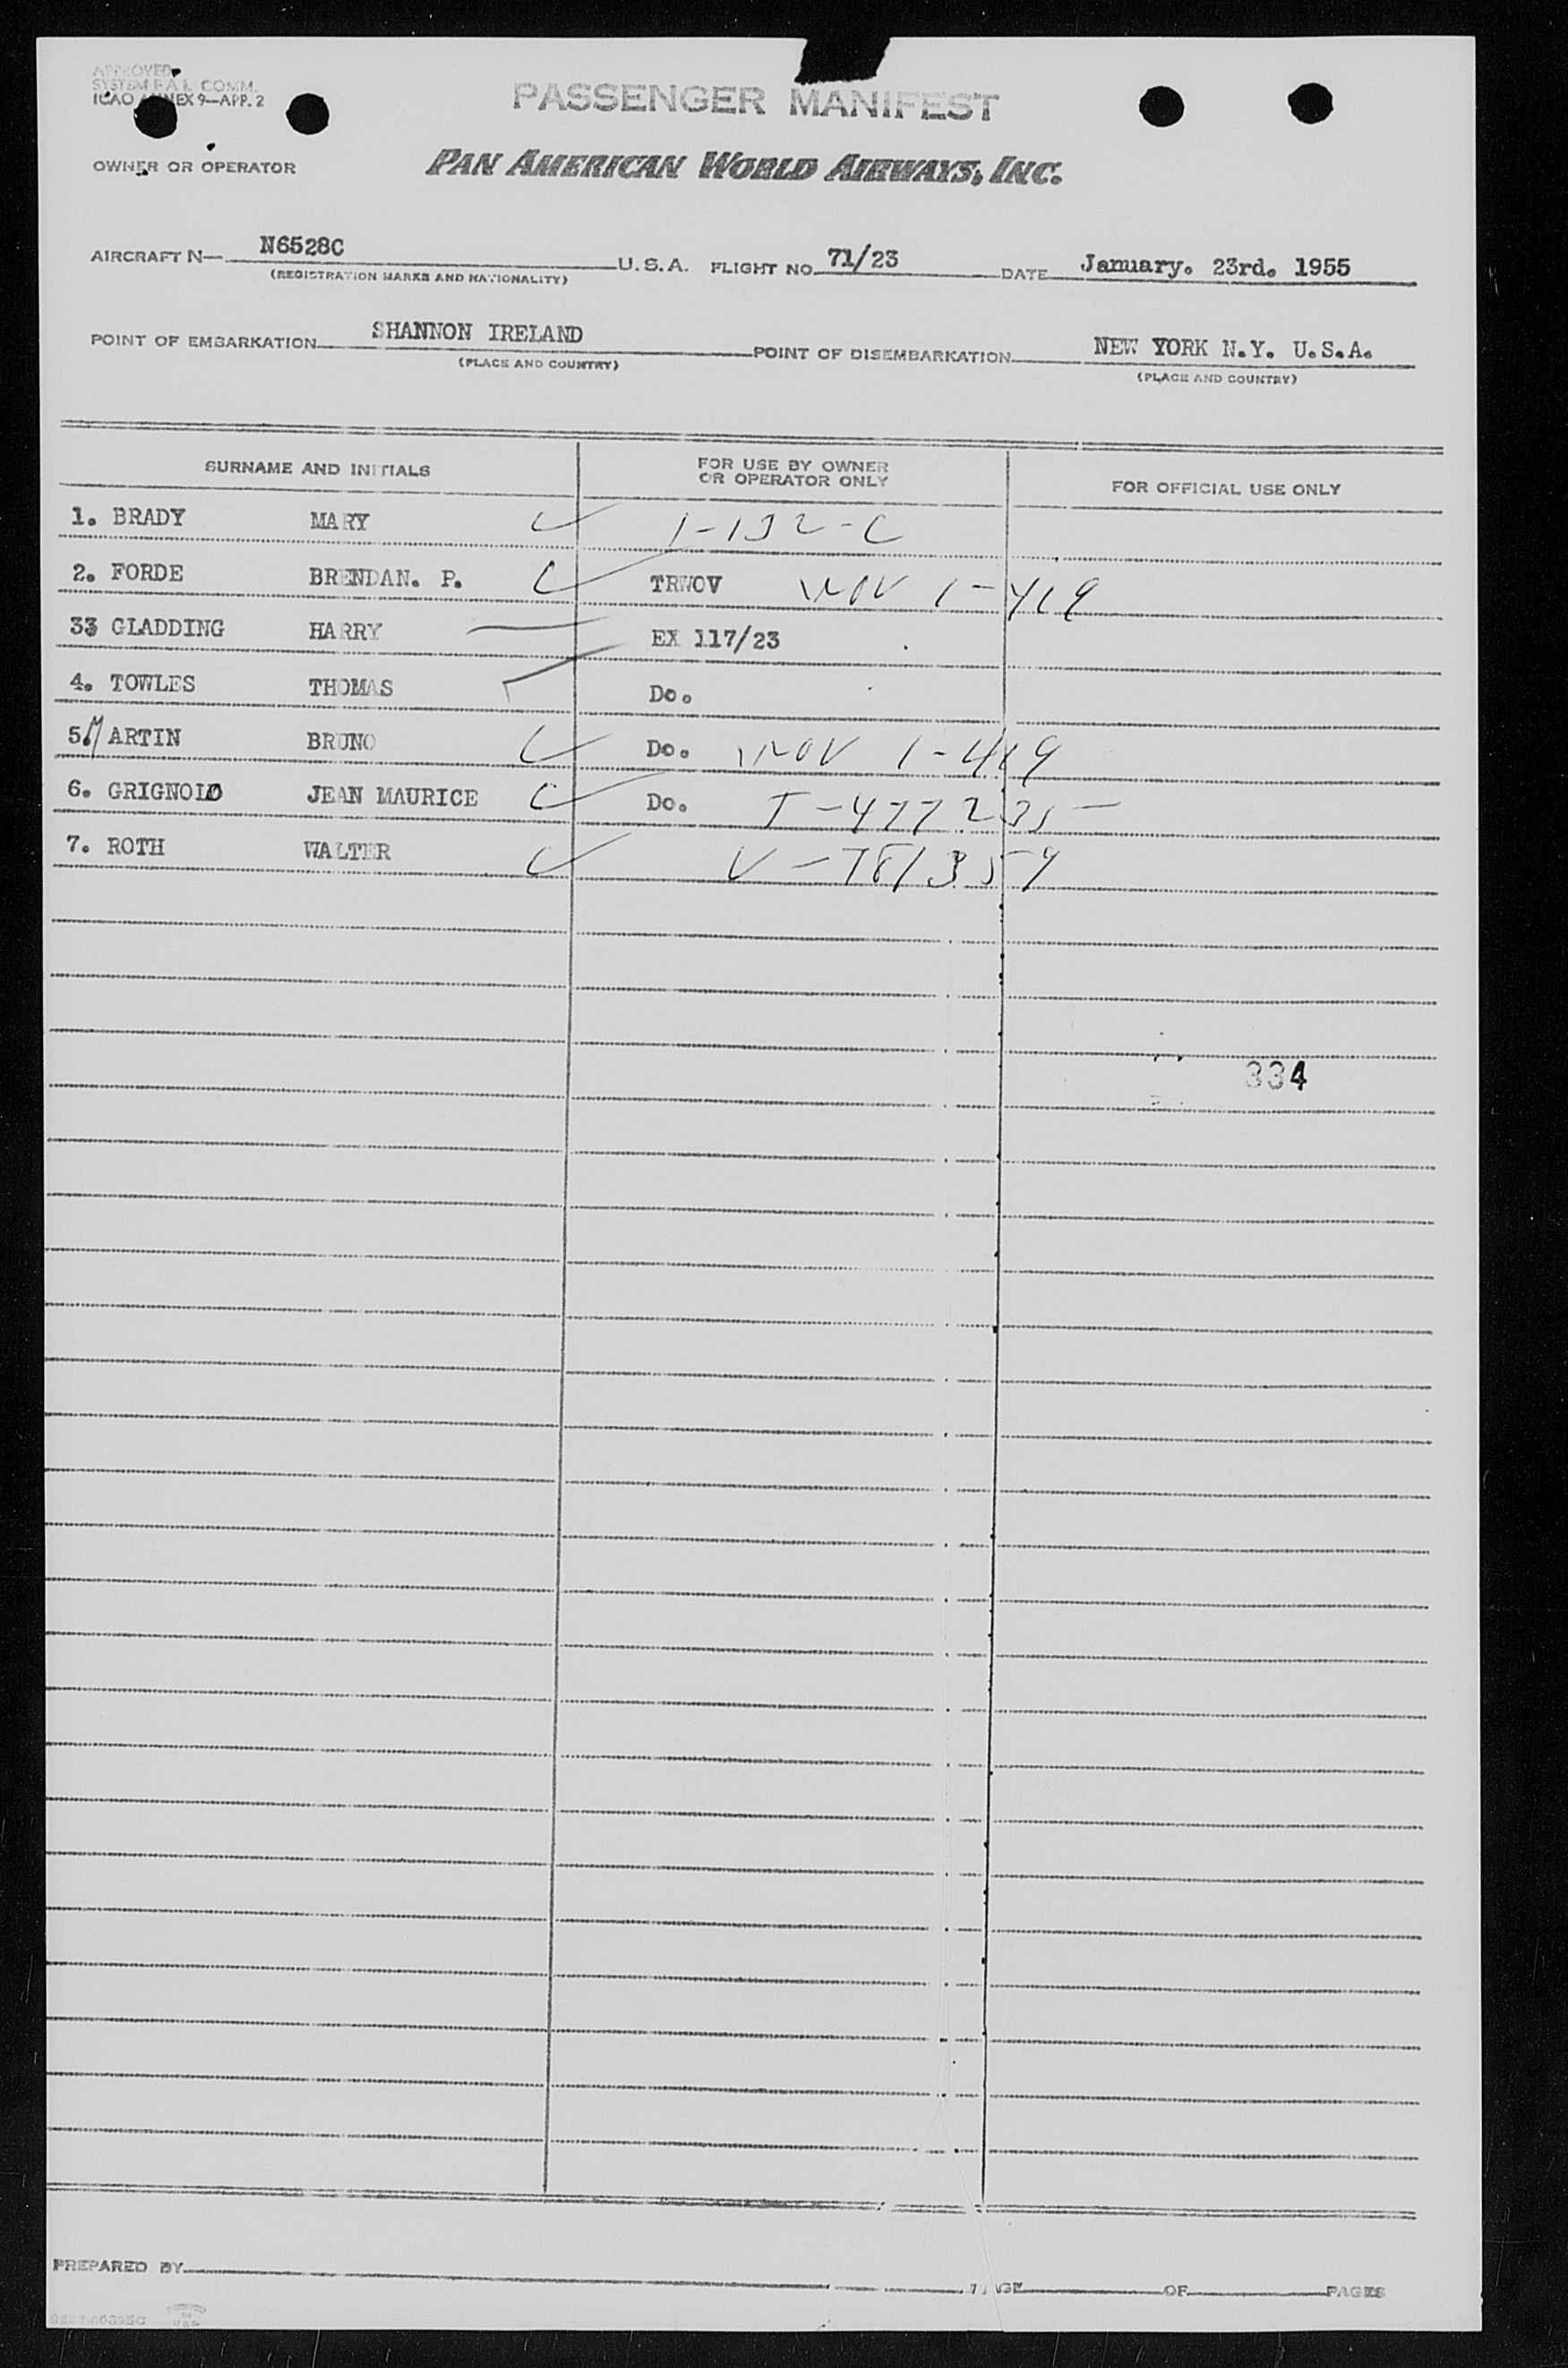 APPROVED
SYSTEM F.A.L. COMM.
ICAO ANNEX 9—APP. 2
PASSENGER MANIFEST
OWNER OR OPERATOR PAN AMERICAN WORLD AIRWAYS, INC.
AIRCRAFT N— N6528C U.S.A. FLIGHT NO. 71/23 DATE January. 23rd. 1955
(REGISTRATION MARKS AND NATIONALITY)
POINT OF EMBARKATION SHANNON IRELAND POINT OF DISEMBARKATION NEW YORK N.Y. U.S.A.
(PLACE AND COUNTRY) (PLACE AND COUNTRY)
SURNAME AND INITIALS FOR USE BY OWNER OR OPERATOR ONLY FOR OFFICIAL USE ONLY
1. BRADY MARY 1-132-C
2. FORDE BRENDAN. P. TRWOV WOV 1-419
33 GLADDING HARRY EX 117/23
4. TOWLES THOMAS Do.
5. MARTIN BRUNO Do. WOV 1-419
6. GRIGNOLO JEAN MAURICE Do.
7. ROTH WALTER V-781359
334
PREPARED BY PAGE OF PAGES